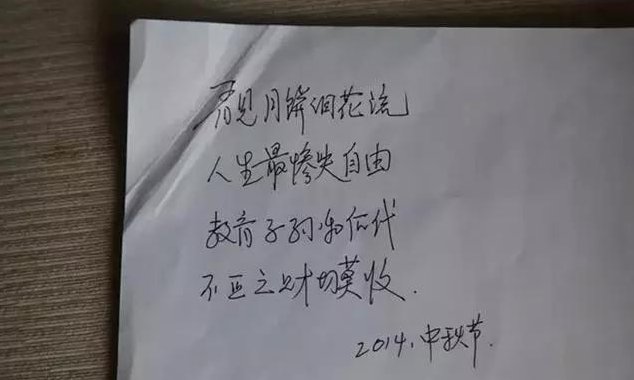 看见月饼泪花流
人生最惨失自由
教育子孙和后代
不正之财切莫收.
2014.中秋节.